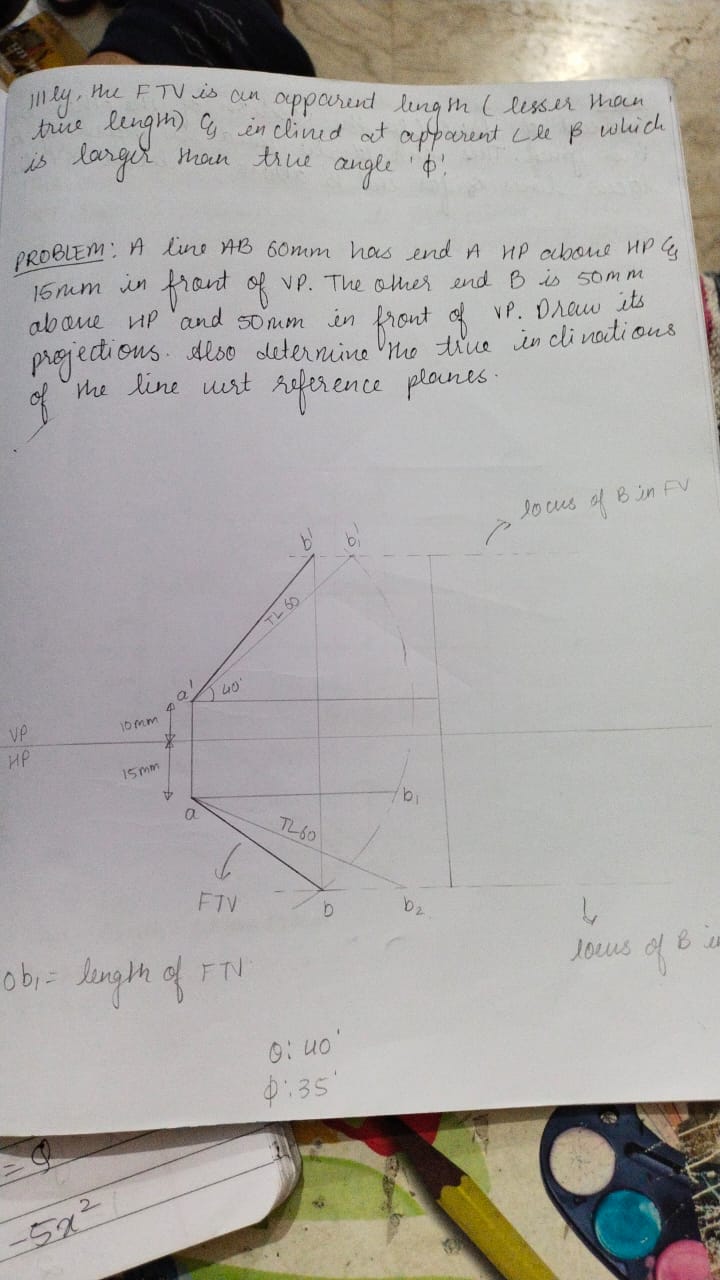 lllly, the FTV is an apparent length ( lesser than
true length) & inclined at apparent Lle β which
is larger than true angle 'φ'.
PROBLEM: A line AB 60mm has end A HP above HP &
15mm in front of VP. The other end B is 50mm
above HP and 50mm in front of VP. Draw its
projections. Also determine the true inclinations
of the line wrt reference planes.
locus of B in FV
b' b₁'
TL 60
a' 40°
10mm
VP
HP
15mm
a b₁
TL60
FTV
b b₂
locus of B
ob₁ = length of FTV
θ: 40°
φ: 35°
= Q
-5x²